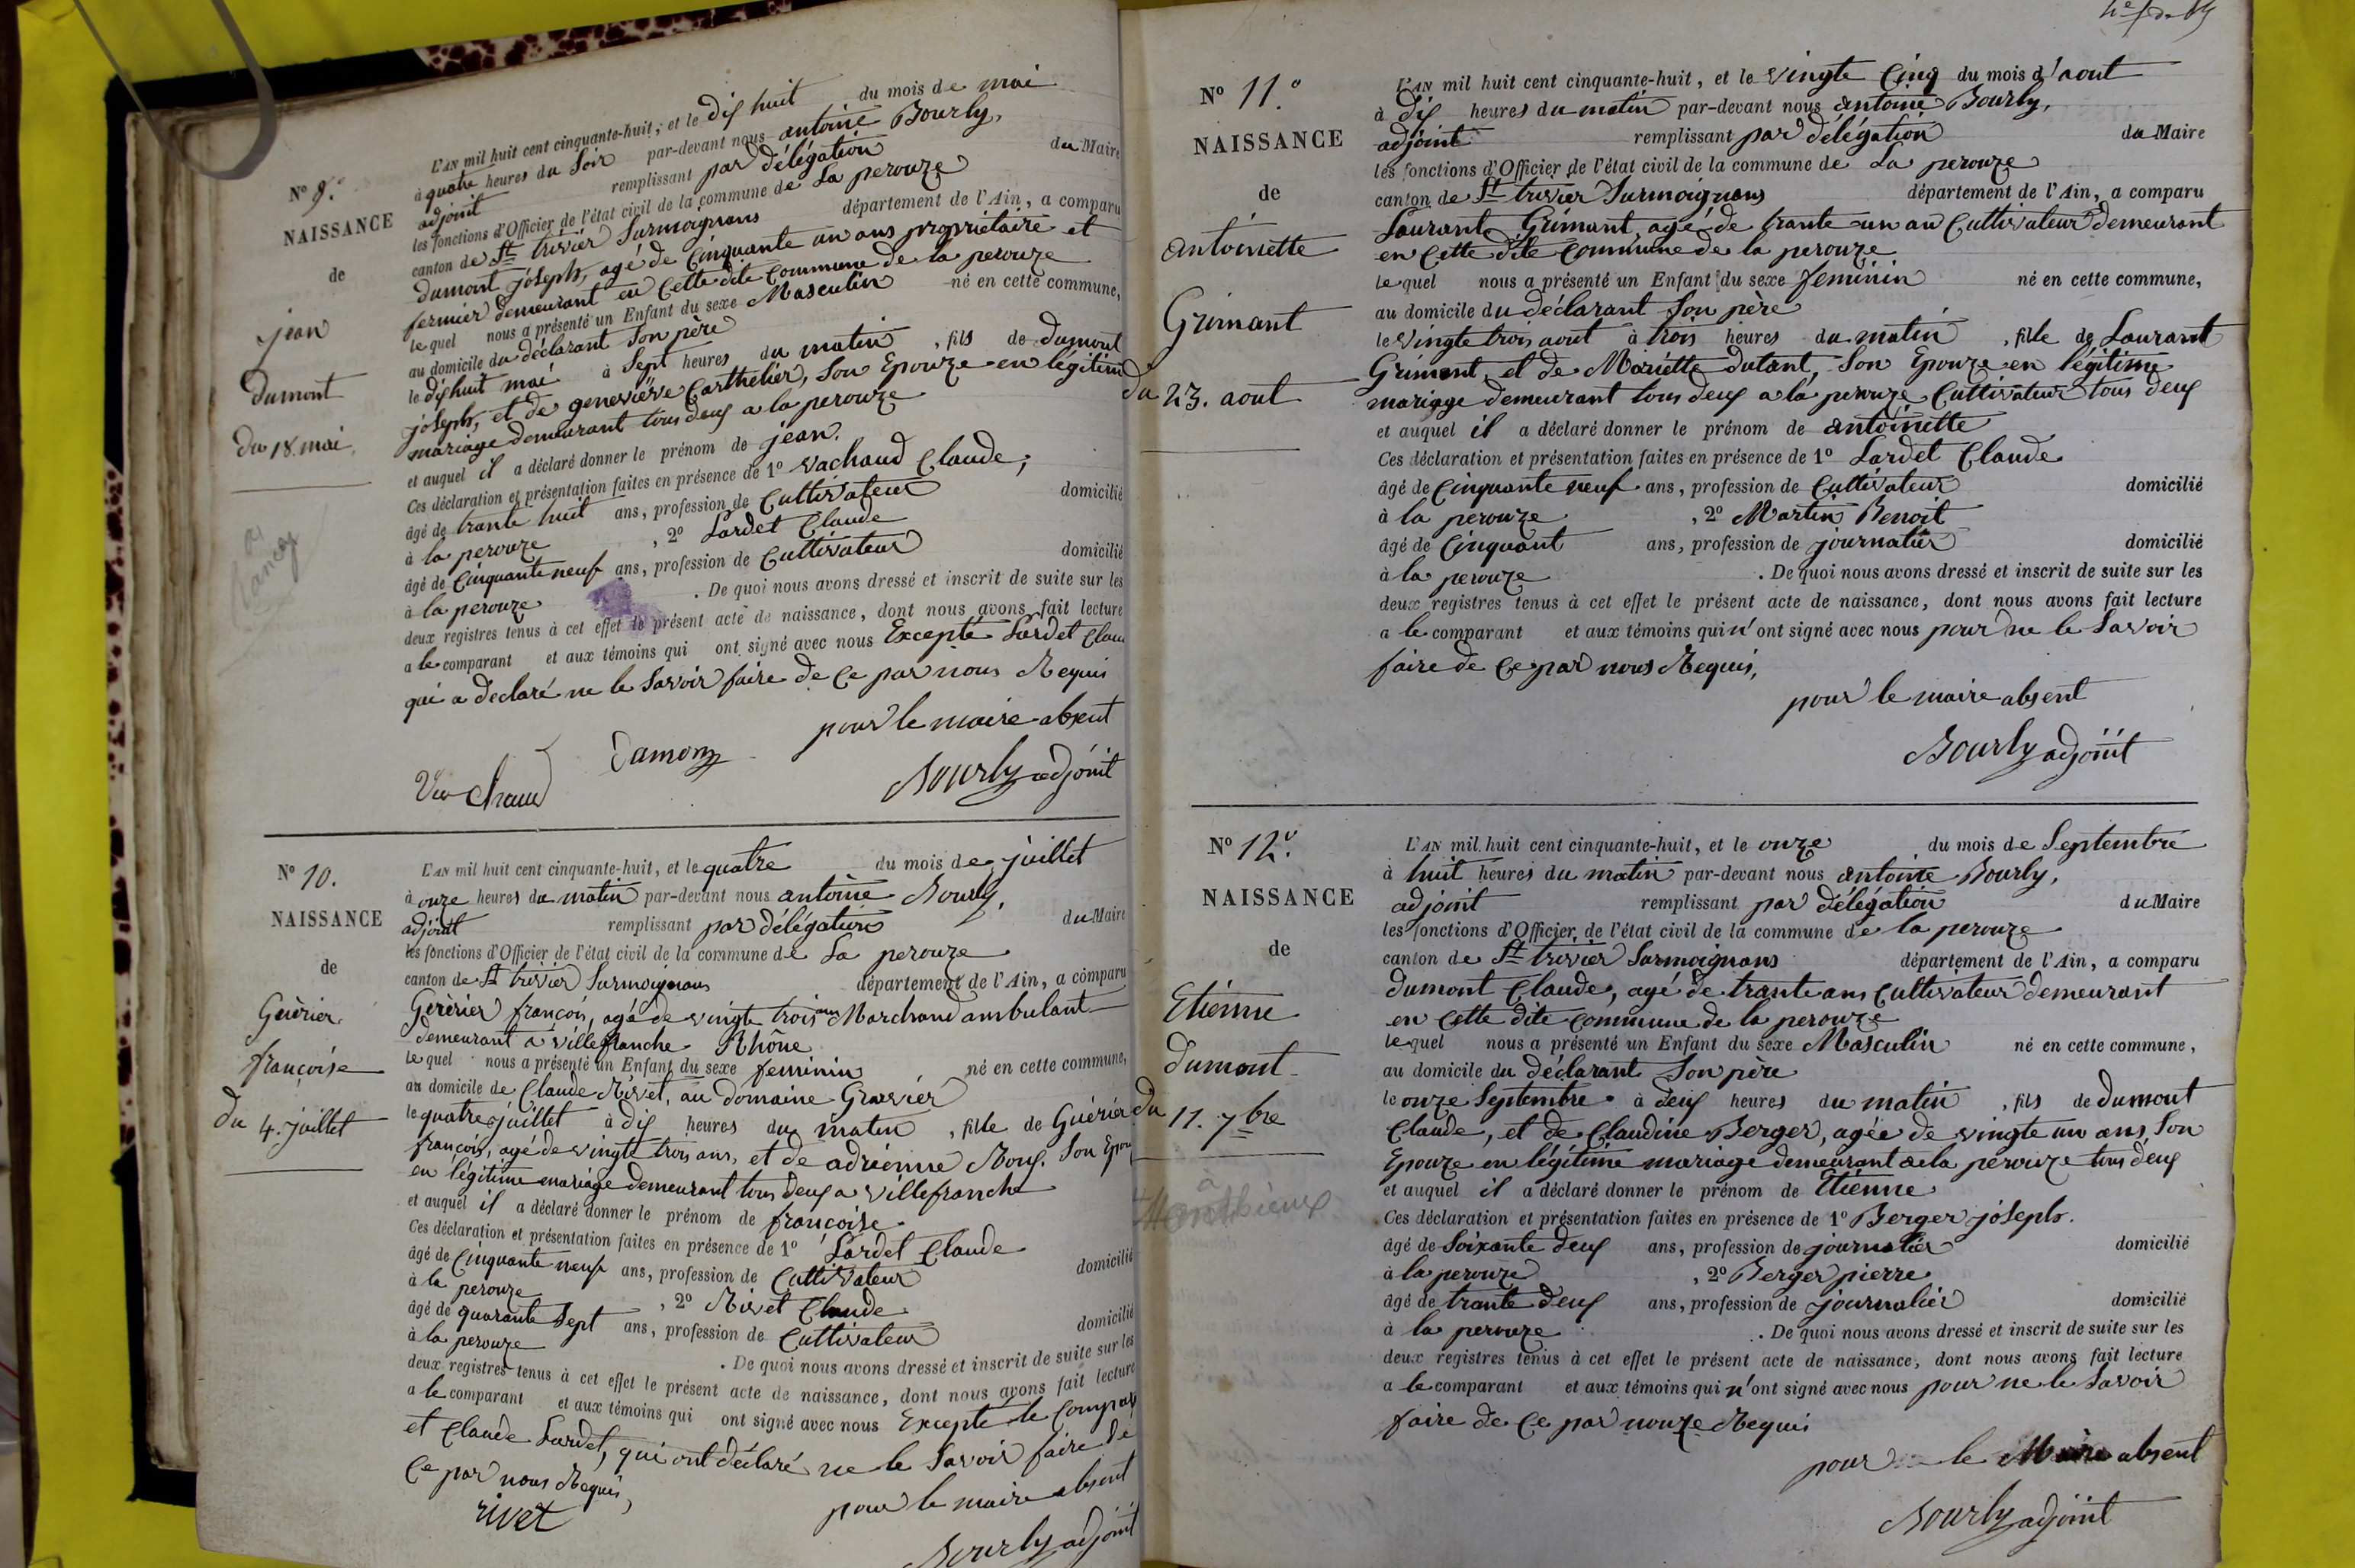 N° 9.
NAISSANCE
de
jean
dumont
du 18. mai
L'AN mil huit cent cinquante-huit, et le dix huit du mois de mai
à quatre heures du Soir par-devant nous antoine Bourly,
adjoint remplissant par délégation du Maire
les fonctions d'Officier de l'état civil de la commune de La perouze
canton de St trivier Surmoignans département de l'Ain, a comparu
dumont joseph, agé de Cinquante un ans propriétaire et
fermier demeurant en Cette dite Commune de la perouze
lequel nous a présenté un Enfant du sexe Masculin né en cette commune,
au domicile du déclarant Son père
le dix huit mai à Sept heures du matin, fils de dumont
joseph, et de geneviève Carthelier, Son Epouze en légitime
mariage demeurant tous deux a la perouze
et auquel il a déclaré donner le prénom de jean.
Ces déclaration et présentation faites en présence de 1° Vachaud Claude,
âgé de trante huit ans, profession de Cultivateur domicilié
à la perouze, 2° Lardet Claude
âgé de Cinquante neuf ans, profession de Cultivateur domicilié
à la perouze. De quoi nous avons dressé et inscrit de suite sur les
deux registres tenus à cet effet le présent acte de naissance, dont nous avons fait lecture
a le comparant et aux témoins qui ont signé avec nous Excepté Lardet Clau
qui a declaré ne le Savoir faire de Ce par nous Requis
pour le maire absent
Vachaud Dumon Bourly adjoint
N° 10.
NAISSANCE
de
Guèrier
françoise
du 4. juillet
L'AN mil huit cent cinquante-huit, et le quatre du mois de juillet
à onze heures du matin par-devant nous antoine Bourly,
adjoint remplissant par délégation du Maire
les fonctions d'Officier de l'état civil de la commune de La perouze
canton de St trivier Surmoignans département de l'Ain, a comparu
Gerèrier françois, agé de vingte trois ans Marchand ambulant
demeurant à Villefranche Rhône
lequel nous a présenté un Enfant du sexe feminin né en cette commune,
au domicile de Claude Rivet, au domaine Gravier
le quatre juillet à dix heures du matin, fille de Guèrier
françois, agé de vingte trois ans, et de adrienne Roux. Son Epou
en légitime mariage demeurant tous deux a Villefranche
et auquel il a déclaré donner le prénom de françoise
Ces déclaration et présentation faites en présence de 1° Lardet Claude
âgé de Cinquante neuf ans, profession de Cultivateur domicilié
à la perouze, 2° Rivet Claude
âgé de quarante Sept ans, profession de Cultivateur domicilié
à la perouze. De quoi nous avons dressé et inscrit de suite sur les
deux registres tenus à cet effet le présent acte de naissance, dont nous avons fait lecture
a le comparant et aux témoins qui ont signé avec nous Excepte le Compar
et Claude Lardet, qui ont déclaré ne le Savoir faire de
Ce par nous Requis,
pour le maire absent
rivet
Bourly adjoint
N° 11.°
NAISSANCE
de
antoinette
Grimant
du 23. aout
L'AN mil huit cent cinquante-huit, et le vingte Cinq du mois d'aout
à dix heures du matin par-devant nous antoine Bourly,
adjoint remplissant par délégation du Maire
les fonctions d'Officier de l'état civil de la commune de La perouze
canton de St trivier Surmoignans département de l'Ain, a comparu
Laurant Grimant, agé de trante un an Cultivateur demeurant
en Cette dite Commune de la perouze
lequel nous a présenté un Enfant du sexe feminin né en cette commune,
au domicile du déclarant Son père
le vingte trois aout à trois heures du matin, fille de Laurant
Grimant, et de Mariette dutant, Son Epouze en légitime
mariage demeurant tous deux a la perouze Cultivateur tous deux
et auquel il a déclaré donner le prénom de antoinette
Ces déclaration et présentation faites en présence de 1° Lardet Claude
âgé de Cinquante neuf ans, profession de Cultivateur domicilié
à la perouze, 2° Martin Benoit
âgé de Cinquant ans, profession de journalier domicilié
à la perouze. De quoi nous avons dressé et inscrit de suite sur les
deux registres tenus à cet effet le présent acte de naissance, dont nous avons fait lecture
a le comparant et aux témoins qui n'ont signé avec nous pour ne le Savoir
faire de Ce par nous Requis,
pour le maire absent
Bourly adjoint
N° 12.°
NAISSANCE
de
Etienne
dumont
du 11. 7bre
a
Monthieux
L'AN mil huit cent cinquante-huit, et le onze du mois de Septembre
à huit heures du matin par-devant nous antoine Bourly,
adjoint remplissant par délégation du Maire
les fonctions d'Officier de l'état civil de la commune de la perouze
canton de St trivier Surmoignans département de l'Ain, a comparu
dumont Claude, agé de trante ans Cultivateur demeurant
en Cette dite Commune de la perouze
lequel nous a présenté un Enfant du sexe Masculin né en cette commune,
au domicile du déclarant Son père
le onze Septembre à deux heures du matin, fils de dumont
Claude, et de Claudine Berger, agée de vingte un ans, Son
Epouze en légitime mariage demeurant a la perouze tous deux
et auquel il a déclaré donner le prénom de Etienne
Ces déclaration et présentation faites en présence de 1° Berger joseph.
âgé de Soixante deux ans, profession de journalier domicilié
à la perouze, 2° Berger pierre
âgé de trante deux ans, profession de journalier domicilié
à la perouze. De quoi nous avons dressé et inscrit de suite sur les
deux registres tenus à cet effet le présent acte de naissance, dont nous avons fait lecture
a le comparant et aux témoins qui n'ont signé avec nous pour ne le Savoir
faire de Ce par nouze Requis
pour le Maire absent
Bourly adjoint